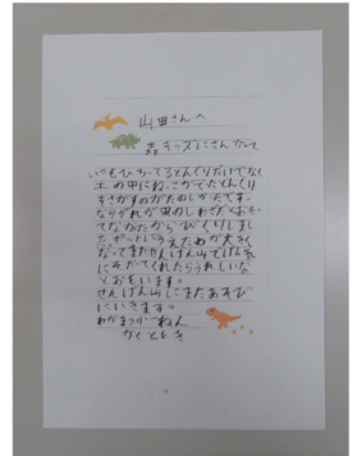 山田さんへ
森キッズにさんかして
いつもひろってるどんぐりだけでなく
土の中にね、こがでたどんぐり
をさがすのがたのしかたです。
ならがれが虫のしわざだとおも
てなかたからびくりしまし
た。ポットにうえためが大きく
なってまたせんげん山でげん気
にそだてくれたらうれしいな
とおもいます。
せんげん山にまたあそび
にいきます。
わかまつ小一ねん